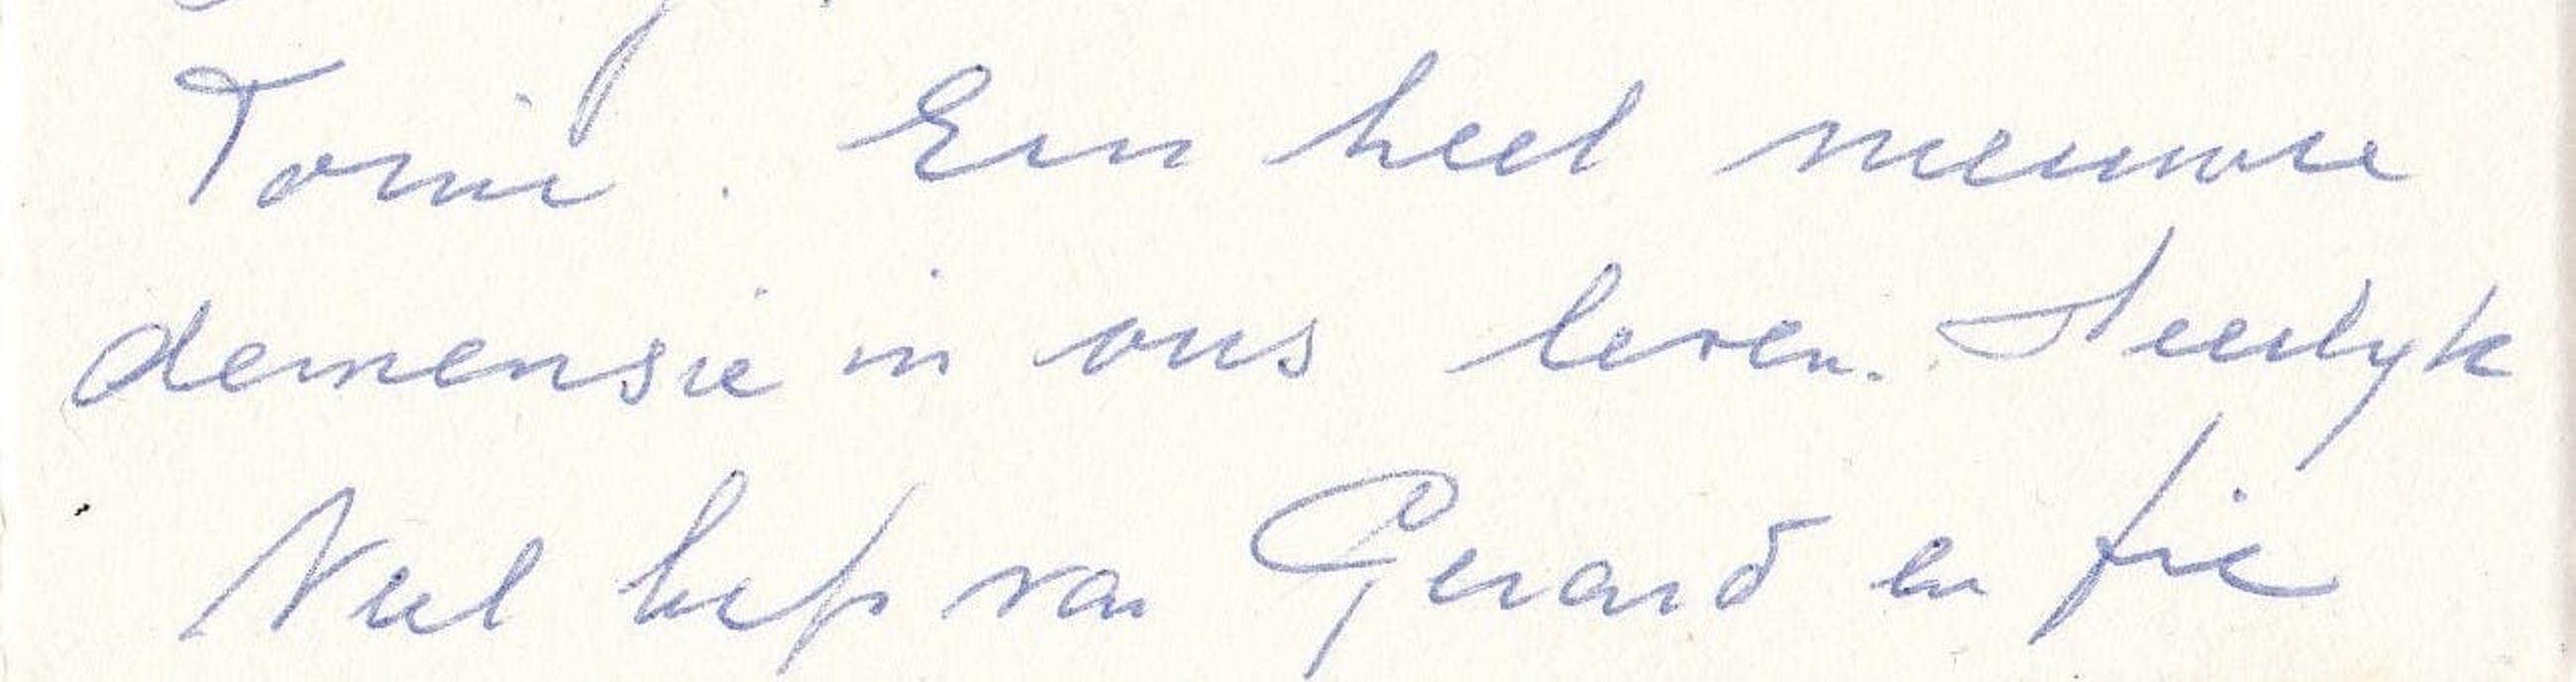 Tonie. Een heel nieuwe
demensie in ons leven. Heerlyk
Veel liefs van Gerard en Fie